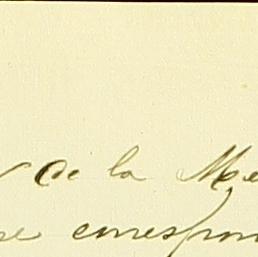 de la Me
se corespon